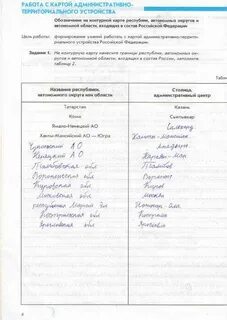 РАБОТА С КАРТОЙ АДМИНИСТРАТИВНО-
ТЕРРИТОРИАЛЬНОГО УСТРОЙСТВА
Обозначение на контурной карте республик, автономных округов и
автономной области, входящих в состав Российской Федерации
Цель работы: формирование умений работы с картой административно-террито-
риального устройства Российской Федерации.
Задание 1. На контурную карту нанесите границы республик, автономных окру-
гов и автономной области, входящих в состав РФ, заполните
таблицу 2.
Название республики, автономного округа или области
Столица, административный центр
Татарстан Казань
Коми Сыктывкар
Ямало-Ненецкий АО Салехард
Ханты-Мансийский АО — Югра Ханты-Мансийск
Чукотский АО Анадырь
Ненецкий АО Нарьян-Мар
Тамбовская обл Тамбов
Воронежская обл Воронеж
Кировская обл Киров
Московская обл Москва
республика Марий Эл Йошкар-Ола
Костромская обл Кострома
Ярославская обл Ярославль